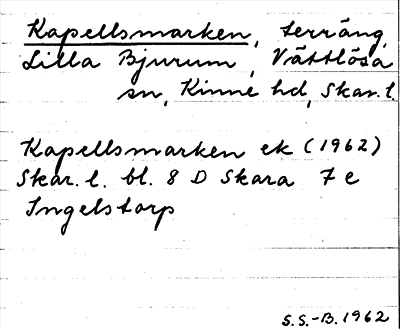 Kapellsmarken, terräng,
Lilla Bjurum, Vättlösa
sn, Kinne hd, Skar. l.
Kapellsmarken ek (1962)
Skar. l. bl. 8 D Skara 7 e
Ingelstorp
S.S.-B. 1962